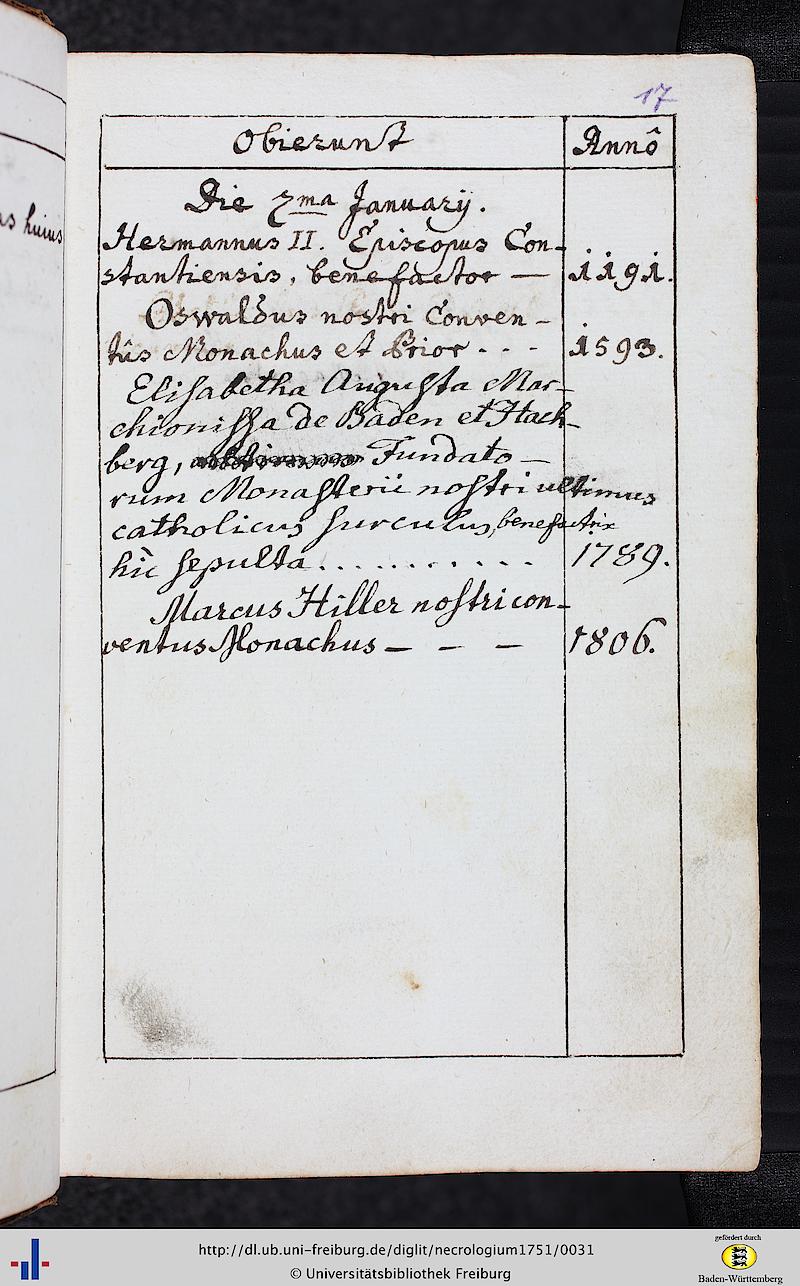 17
Obierunt Annô
Die 7ma January.
Hermannus II. Episcopus Con-
stantiensis, benefactor — 1191.
Oswaldus nostri Conven-
tûs Monachus et Prior - - - 1593.
Elisabetha Augusta Mar-
chionissa de Baden et Hach-
berg, Fundato-
rum Monasterii nostri ultimus
catholicus surculus, benefactrix
hic sepulta ........... 1789.
Marcus Hiller nostri con-
ventus Monachus - - - 1806.
as huius
http://dl.ub.uni-freiburg.de/diglit/necrologium1751/0031
© Universitätsbibliothek Freiburg
gefördert durch
Baden-Württemberg